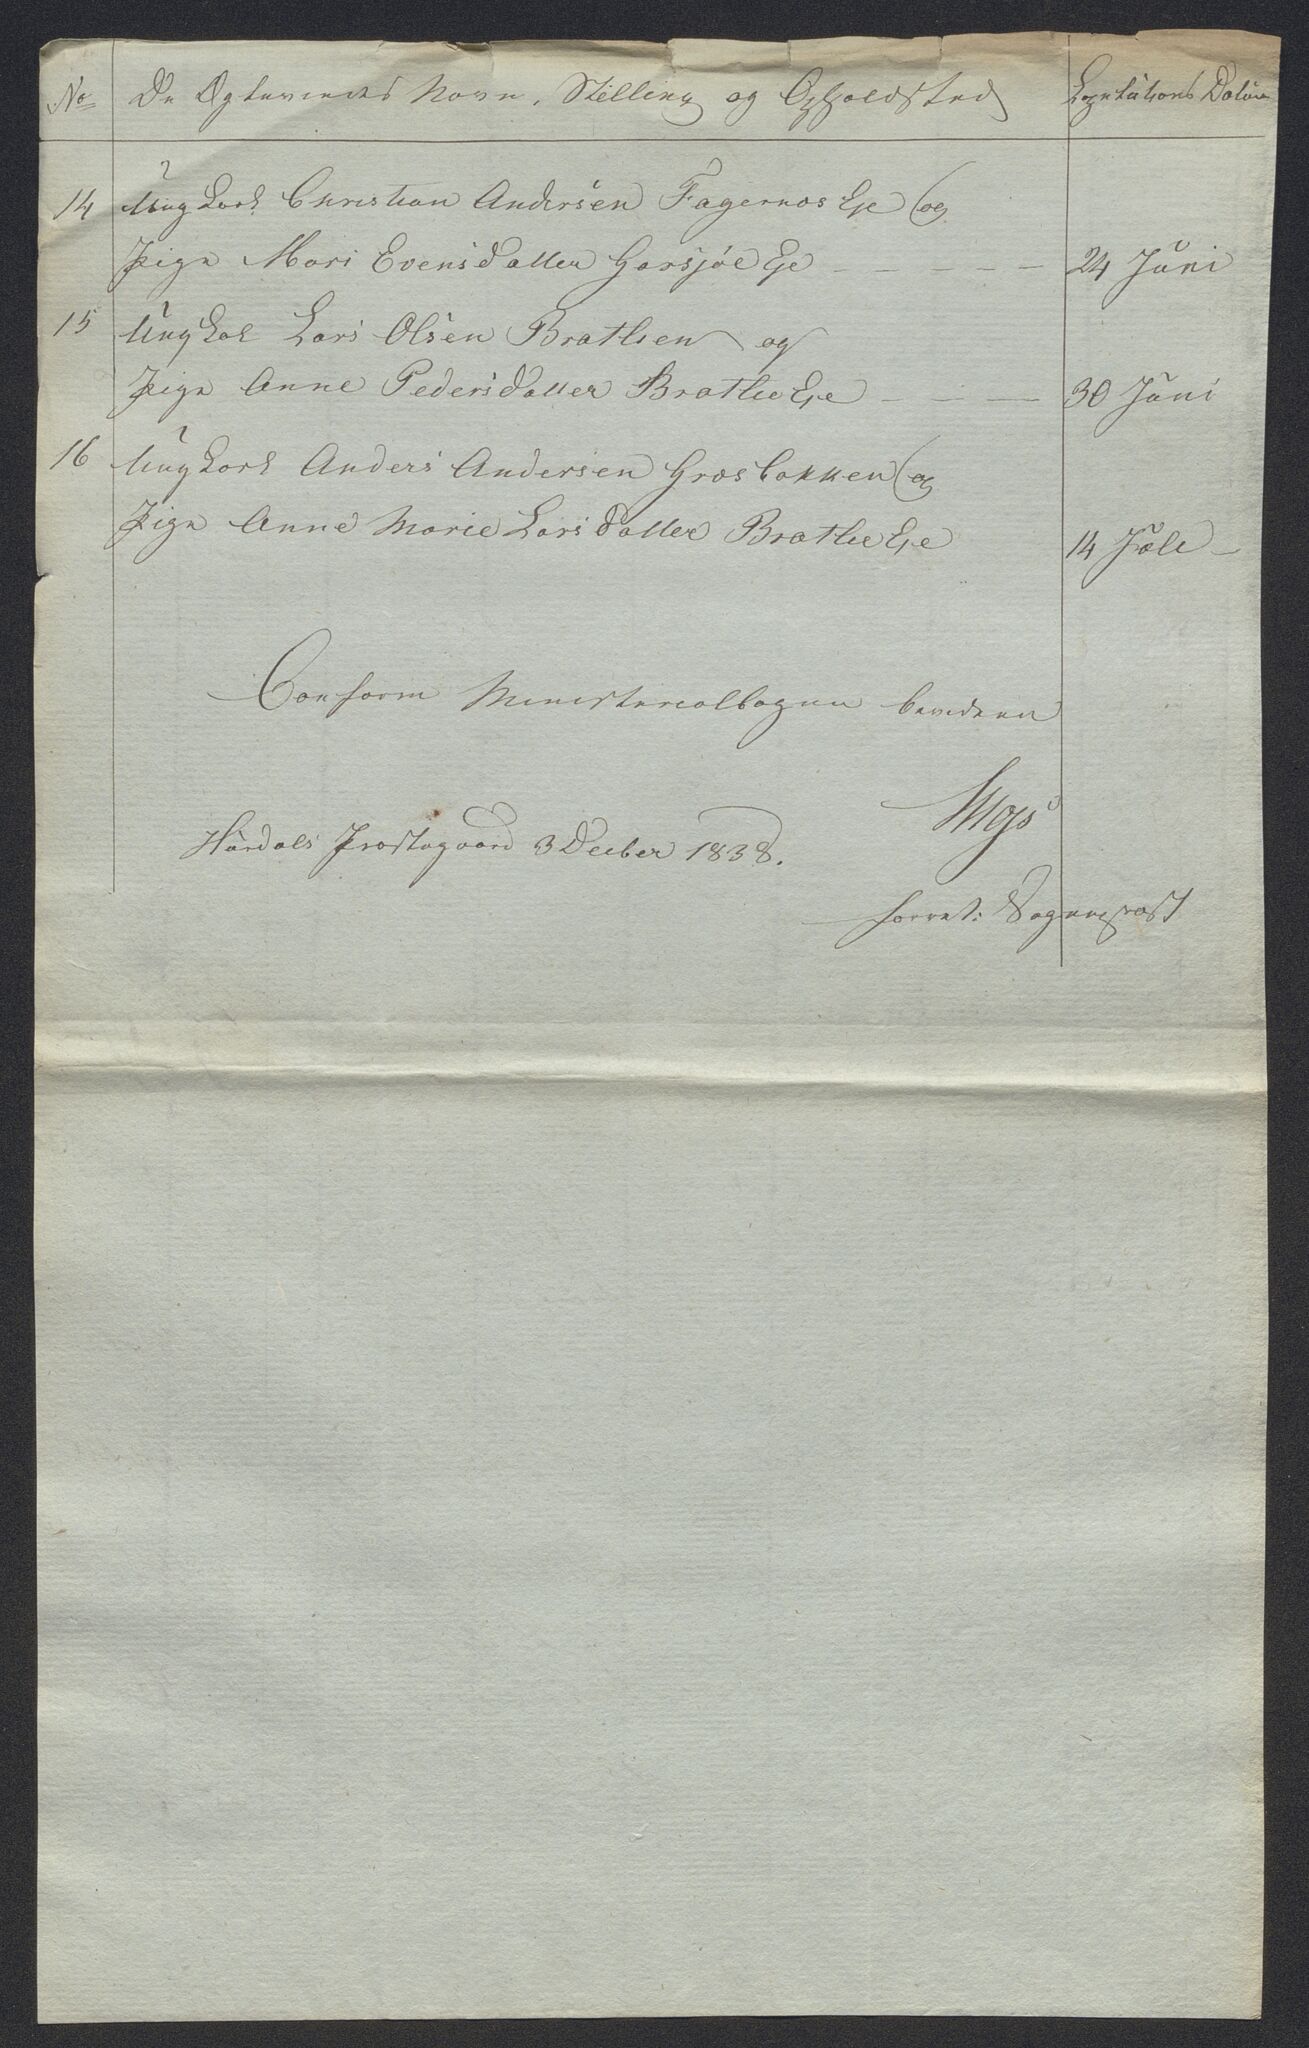 No De Egteviedes Navn, Stilling og Opholdsted Copulations Datum
14 Ungkarl Christian Andersen Fagernæs Eje og
Pige Mari Evensdatter Garsjøe Eje - - - - - 24 Juni
15 Ungkal Lars Olsen Brathen og
Pige Anne Pedersdatter Brathe Eje - - - 30 Juni
16 Ungkarl Anders Andersen Græsbakken og
Pige Anne Marie Larsdatter Brathe Eje 14 Jule -
Conform Ministerialbogen bevidnes
Hurdals Præstegaard 3 Decber 1838.
forret: Sognepræst